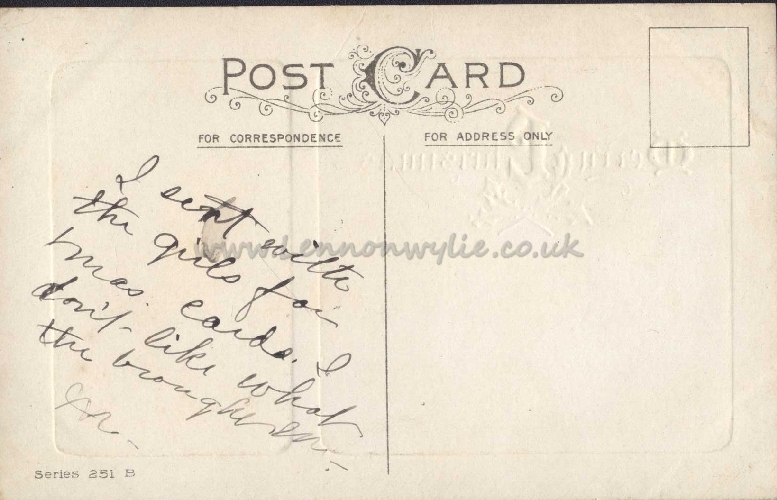 POST CARD
FOR CORRESPONDENCE
FOR ADDRESS ONLY
I sent with
the girls for
xmas cards. I
don't like what
the brought
www.Lennonwylie.co.uk
Series 251 B